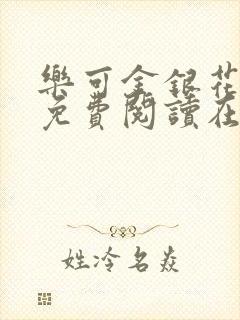 樂可金銀花
免費閱讀在
姓冷名焱